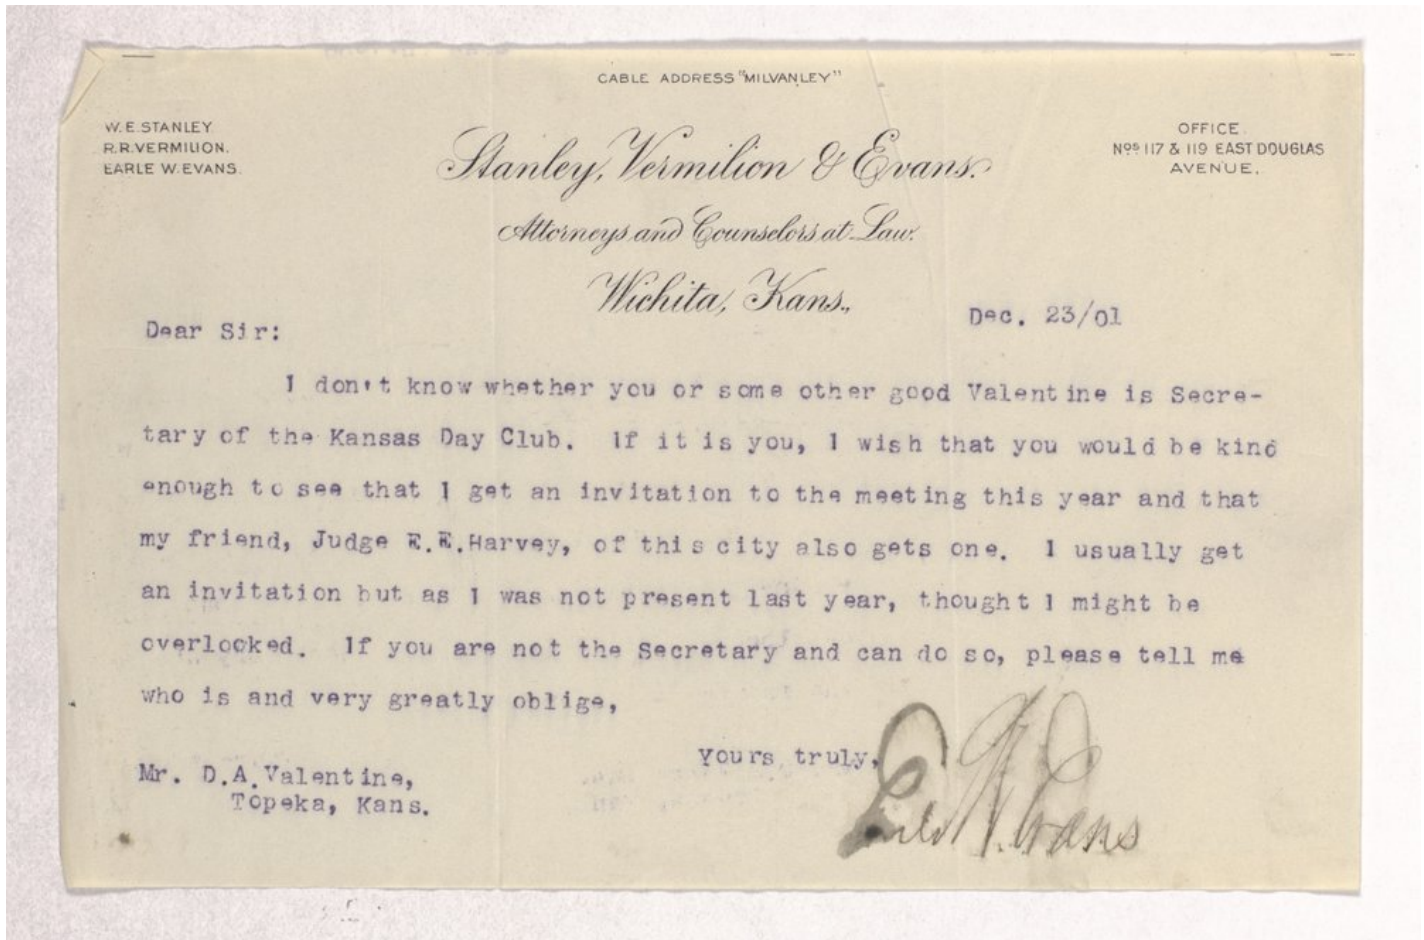 CABLE ADDRESS "MILVANLEY"
W.E.STANLEY.
R.R.VERMILION.
EARLE W.EVANS.
OFFICE.
Nos 117 & 119 EAST DOUGLAS
AVENUE.
Stanley, Vermilion & Evans.
Attorneys and Counselors at Law.
Wichita, Kans.,
Dec. 23/01
Dear Sir:
I don't know whether you or some other good Valentine is Secre-
tary of the Kansas Day Club. If it is you, I wish that you would be kind
enough to see that I get an invitation to the meeting this year and that
my friend, Judge E.E.Harvey, of this city also gets one. I usually get
an invitation but as I was not present last year, thought I might be
overlooked. If you are not the Secretary and can do so, please tell me
who is and very greatly oblige,
Yours truly,
Earle W. Evans
Mr. D.A.Valentine,
Topeka, Kans.